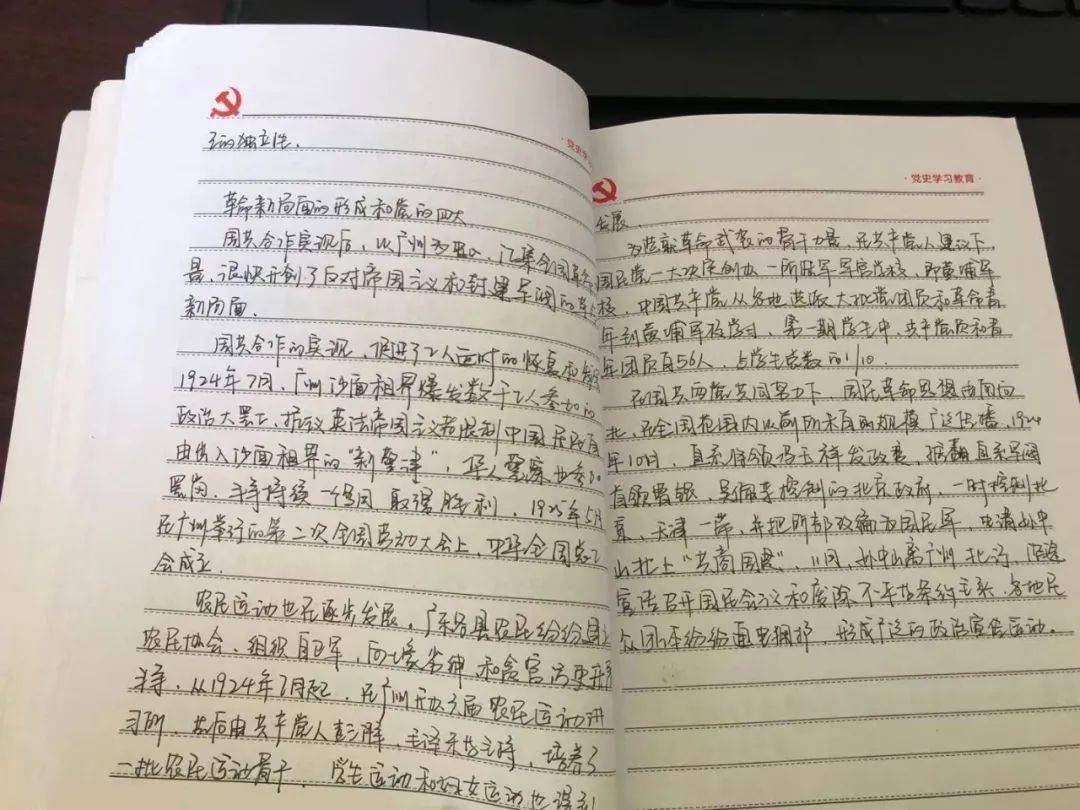 ·党史学
主的独立性。
革命新局面的形成和党的四大
国共合作实现后，以广州为中心，汇集全国革命
量，很快开创了反对帝国主义和封建军阀的革
新局面。
国共合作的实现，促进了工人运动的恢复和发
1924年7月，广州沙面租界爆发数千工人参加的
政治大罢工，抗议英法帝国主义者限制中国居民自
由出入沙面租界的“新警律”，华人警察也参加
罢岗。斗争持续一个多月，取得胜利。1925年5月
在广州举行的第二次全国劳动大会上，中华全国总工
会成立。
农民运动也在逐步发展。广东各县农民纷纷建立
农民协会，组织自卫军，向土豪劣绅和贪官污吏开展
斗争。从1924年7月起，在广州开办了届农民运动讲
习所，先后由共产党人彭湃、毛泽东等主持，培养了
一批农民运动骨干。学生运动和妇女运动也得到
·党史学习教育·
发展
为造就革命武装的骨干力量，在共产党人建议下，
国民党一大决定创办一所陆军军官学校，即黄埔军
校。中国共产党从各地选派大批党团员和革命青
年到黄埔军校学习，第一期学生中，共产党员和青
年团员有56人，占学生总数的1/10。
在国共两党共同努力下，国民革命思想由南向
北，在全国范围内以前所未有的规模广泛传播。1924
年10月，直系将领冯玉祥发动政变，推翻直系军阀
首领曹锟、吴佩孚控制的北京政府，一时控制北
京、天津一带，并把所部改编为国民军，电请孙中
山北上“共商国是”。11月，孙中山离广州北上，沿途
宣传召开国民会议和废除不平等条约主张。各地民
众团体纷纷通电拥护，形成广泛的政治宣传运动。